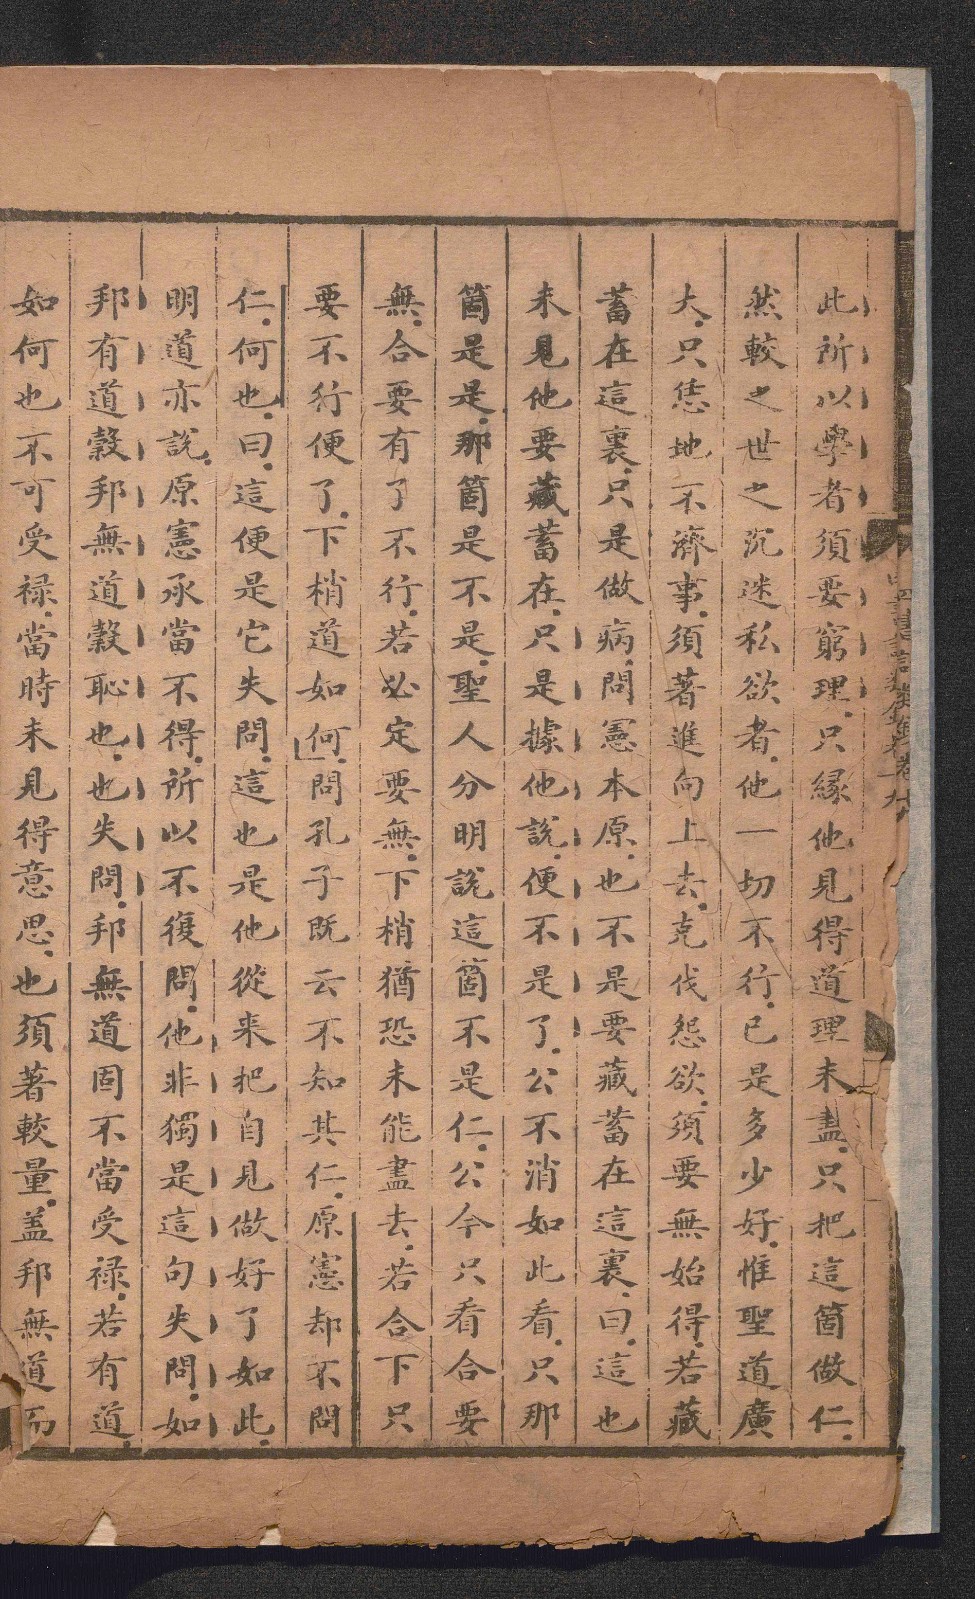 此所以學者須要窮理.只緣他見得道理未盡.只把這箇做仁.
然較之世之沉迷私欲者.他一切不行.已是多少好.惟聖道廣
大.只恁地不濟事.須著進向上去.克伐怨欲.須要無始得.若藏
蓄在這裏.只是做病.問憲本原.也不是要藏蓄在這裏.曰.這也
未見他要藏蓄在.只是據他說.便不是了.公不消如此看.只那
箇是是.那箇是不是.聖人分明說這箇不是仁.公今只看合要
無.合要有了不行.若必定要無.下梢猶恐未能盡去.若合下只
要不行便了.下梢道如何.問孔子既云不知其仁.原憲却不問
仁.何也.曰.這便是它失問.這也是他從来把自見做好了如此.
明道亦說.原憲承當不得.所以不復問.他非獨是這句失問.如
邦有道穀邦無道穀恥也.也失問.邦無道固不當受禄.若有道.
如何也不可受禄.當時未見得意思.也須著較量.盖邦無道而